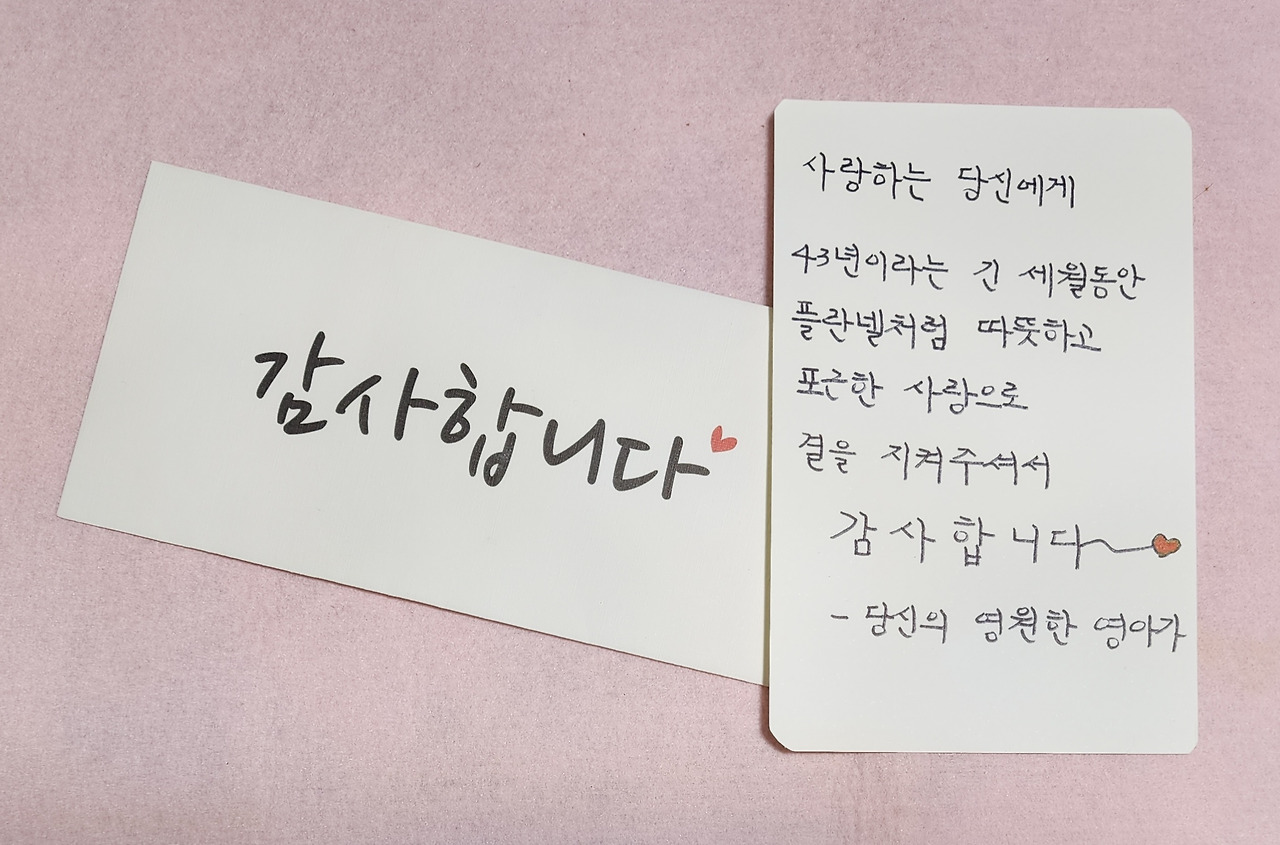 감사합니다
사랑하는 당신에게
43년이라는 긴 세월동안
플란넬처럼 따뜻하고
포근한 사랑으로
결을 지켜주셔서
감사합니다
- 당신의 영원한 영아가